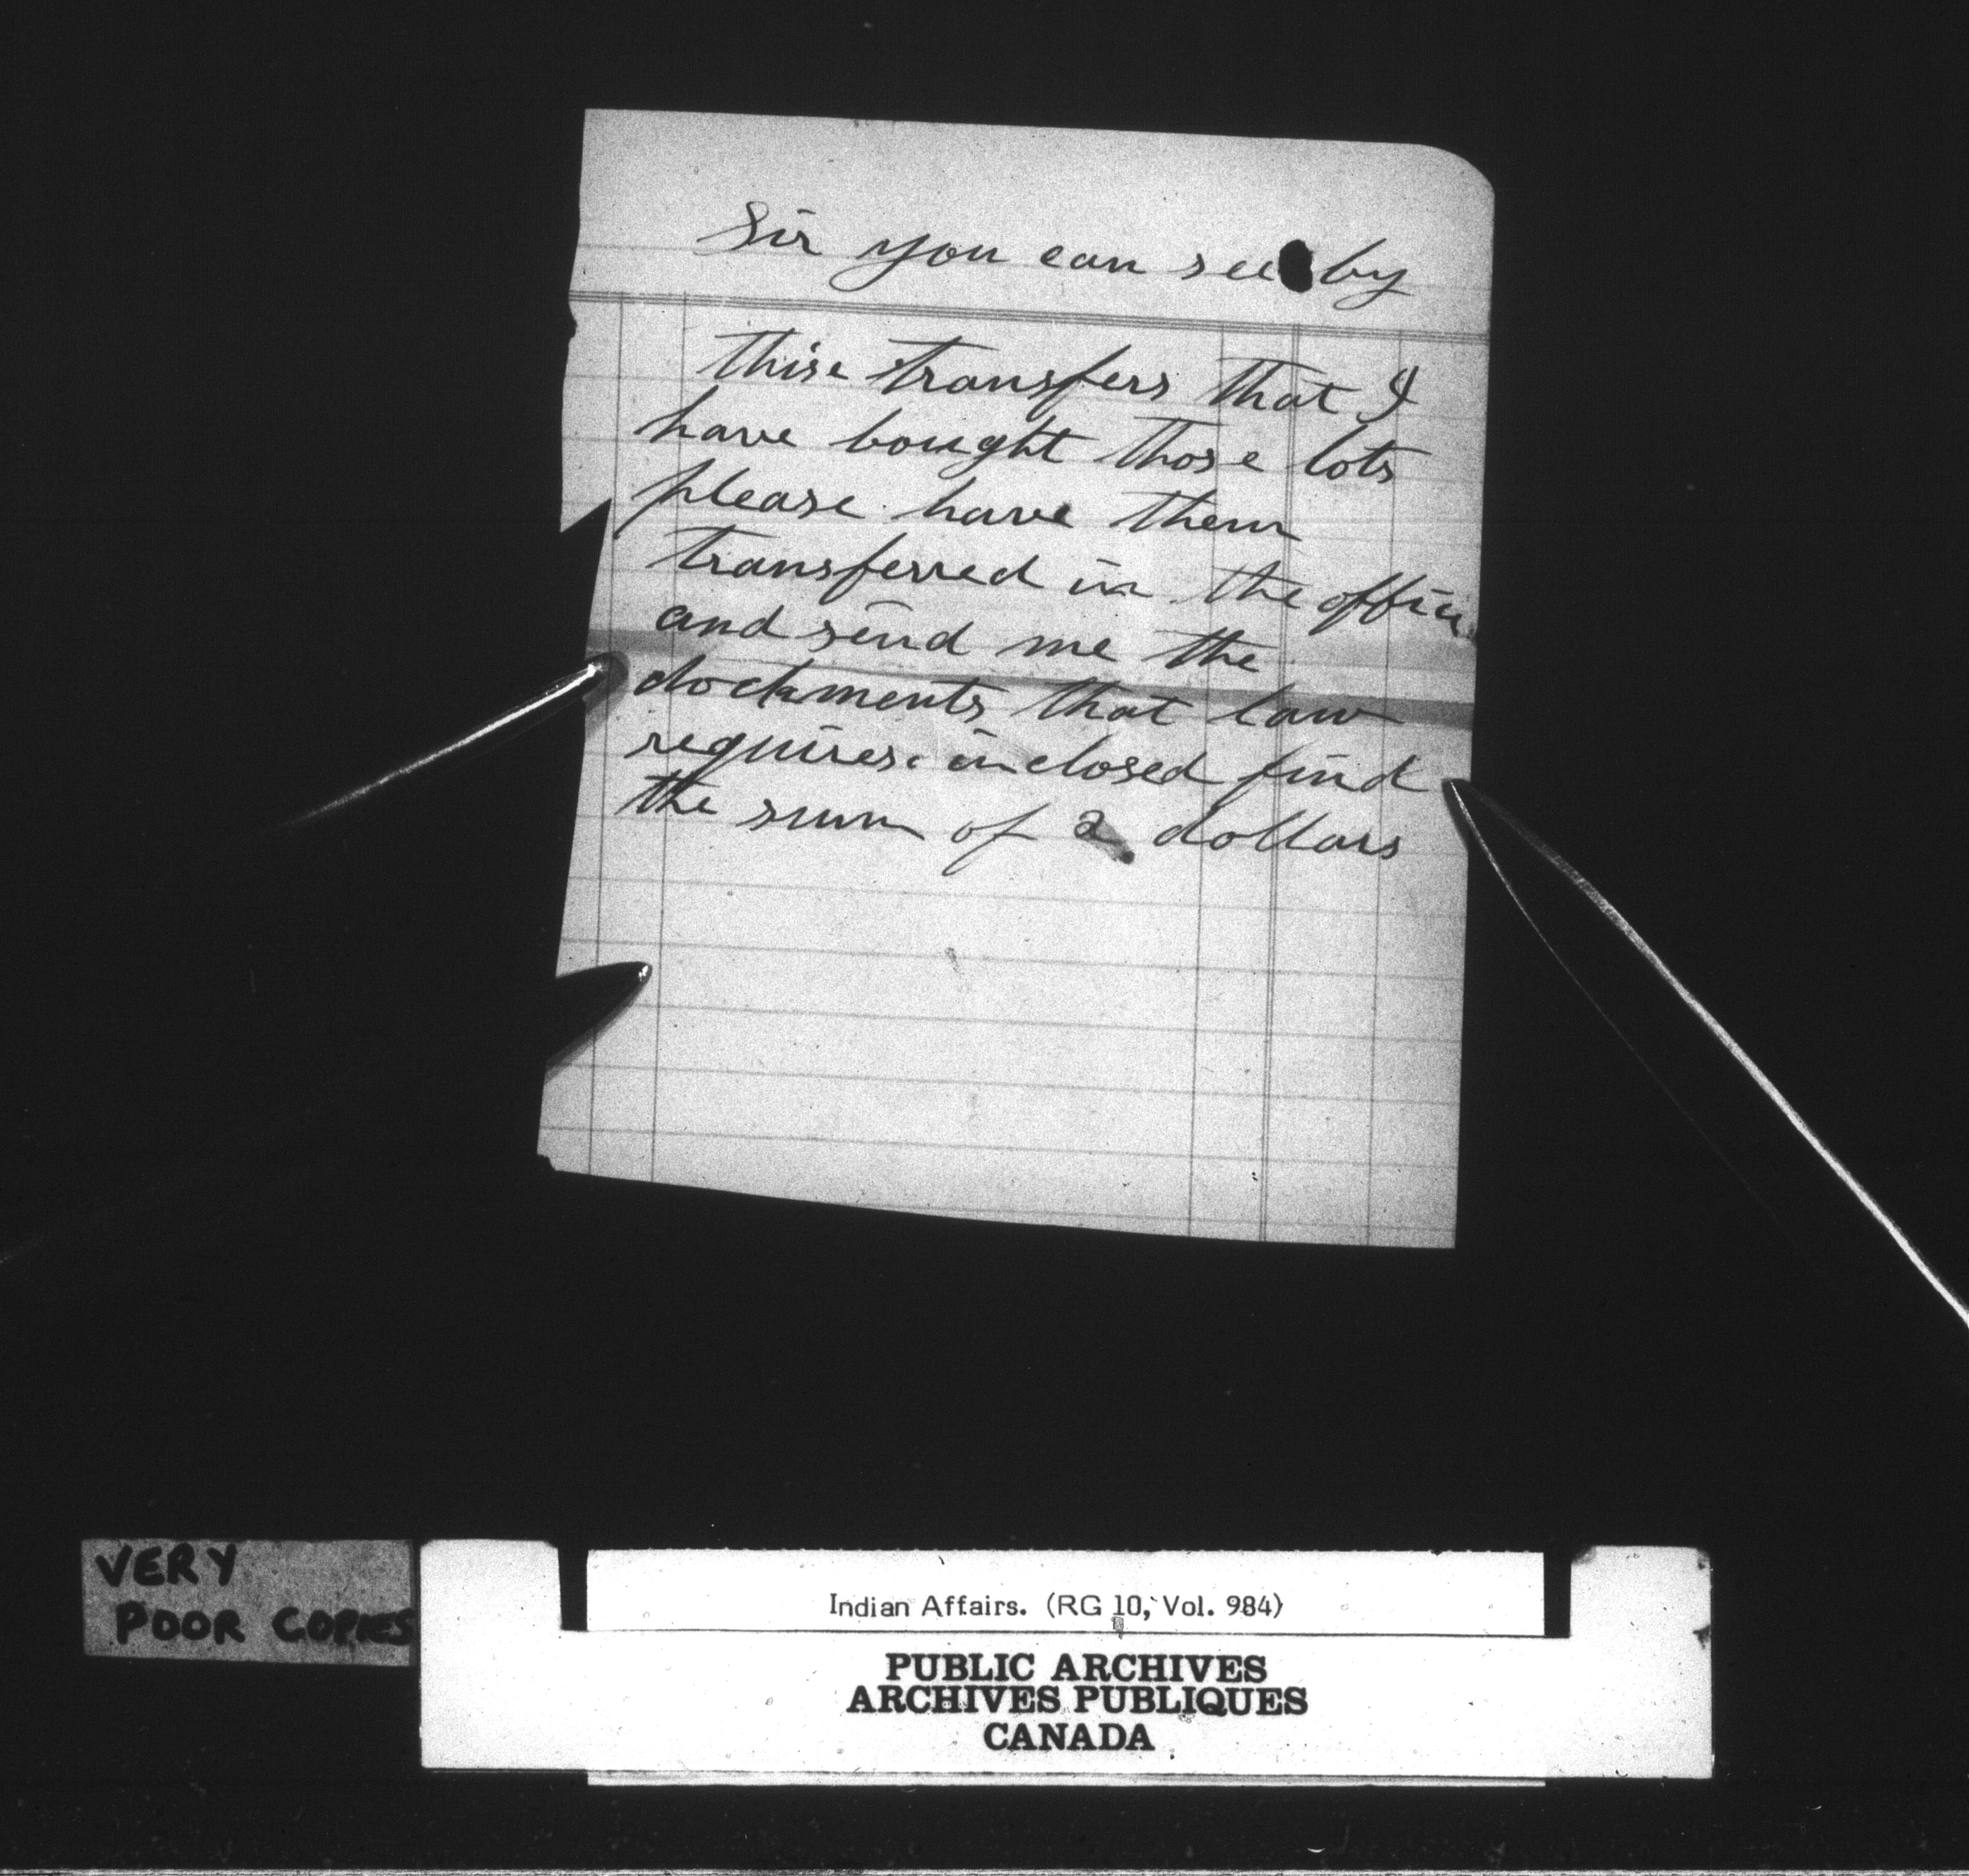 Sir you can see by
thise transfers that I
have bought those lots
please have them
transferred in the office
and send me the
documents that law
requires. inclosed find
the sum of 2 dollars
VERY
POOR COPIES
Indian Affairs. (RG 10, Vol. 984)
PUBLIC ARCHIVES
ARCHIVES PUBLIQUES
CANADA